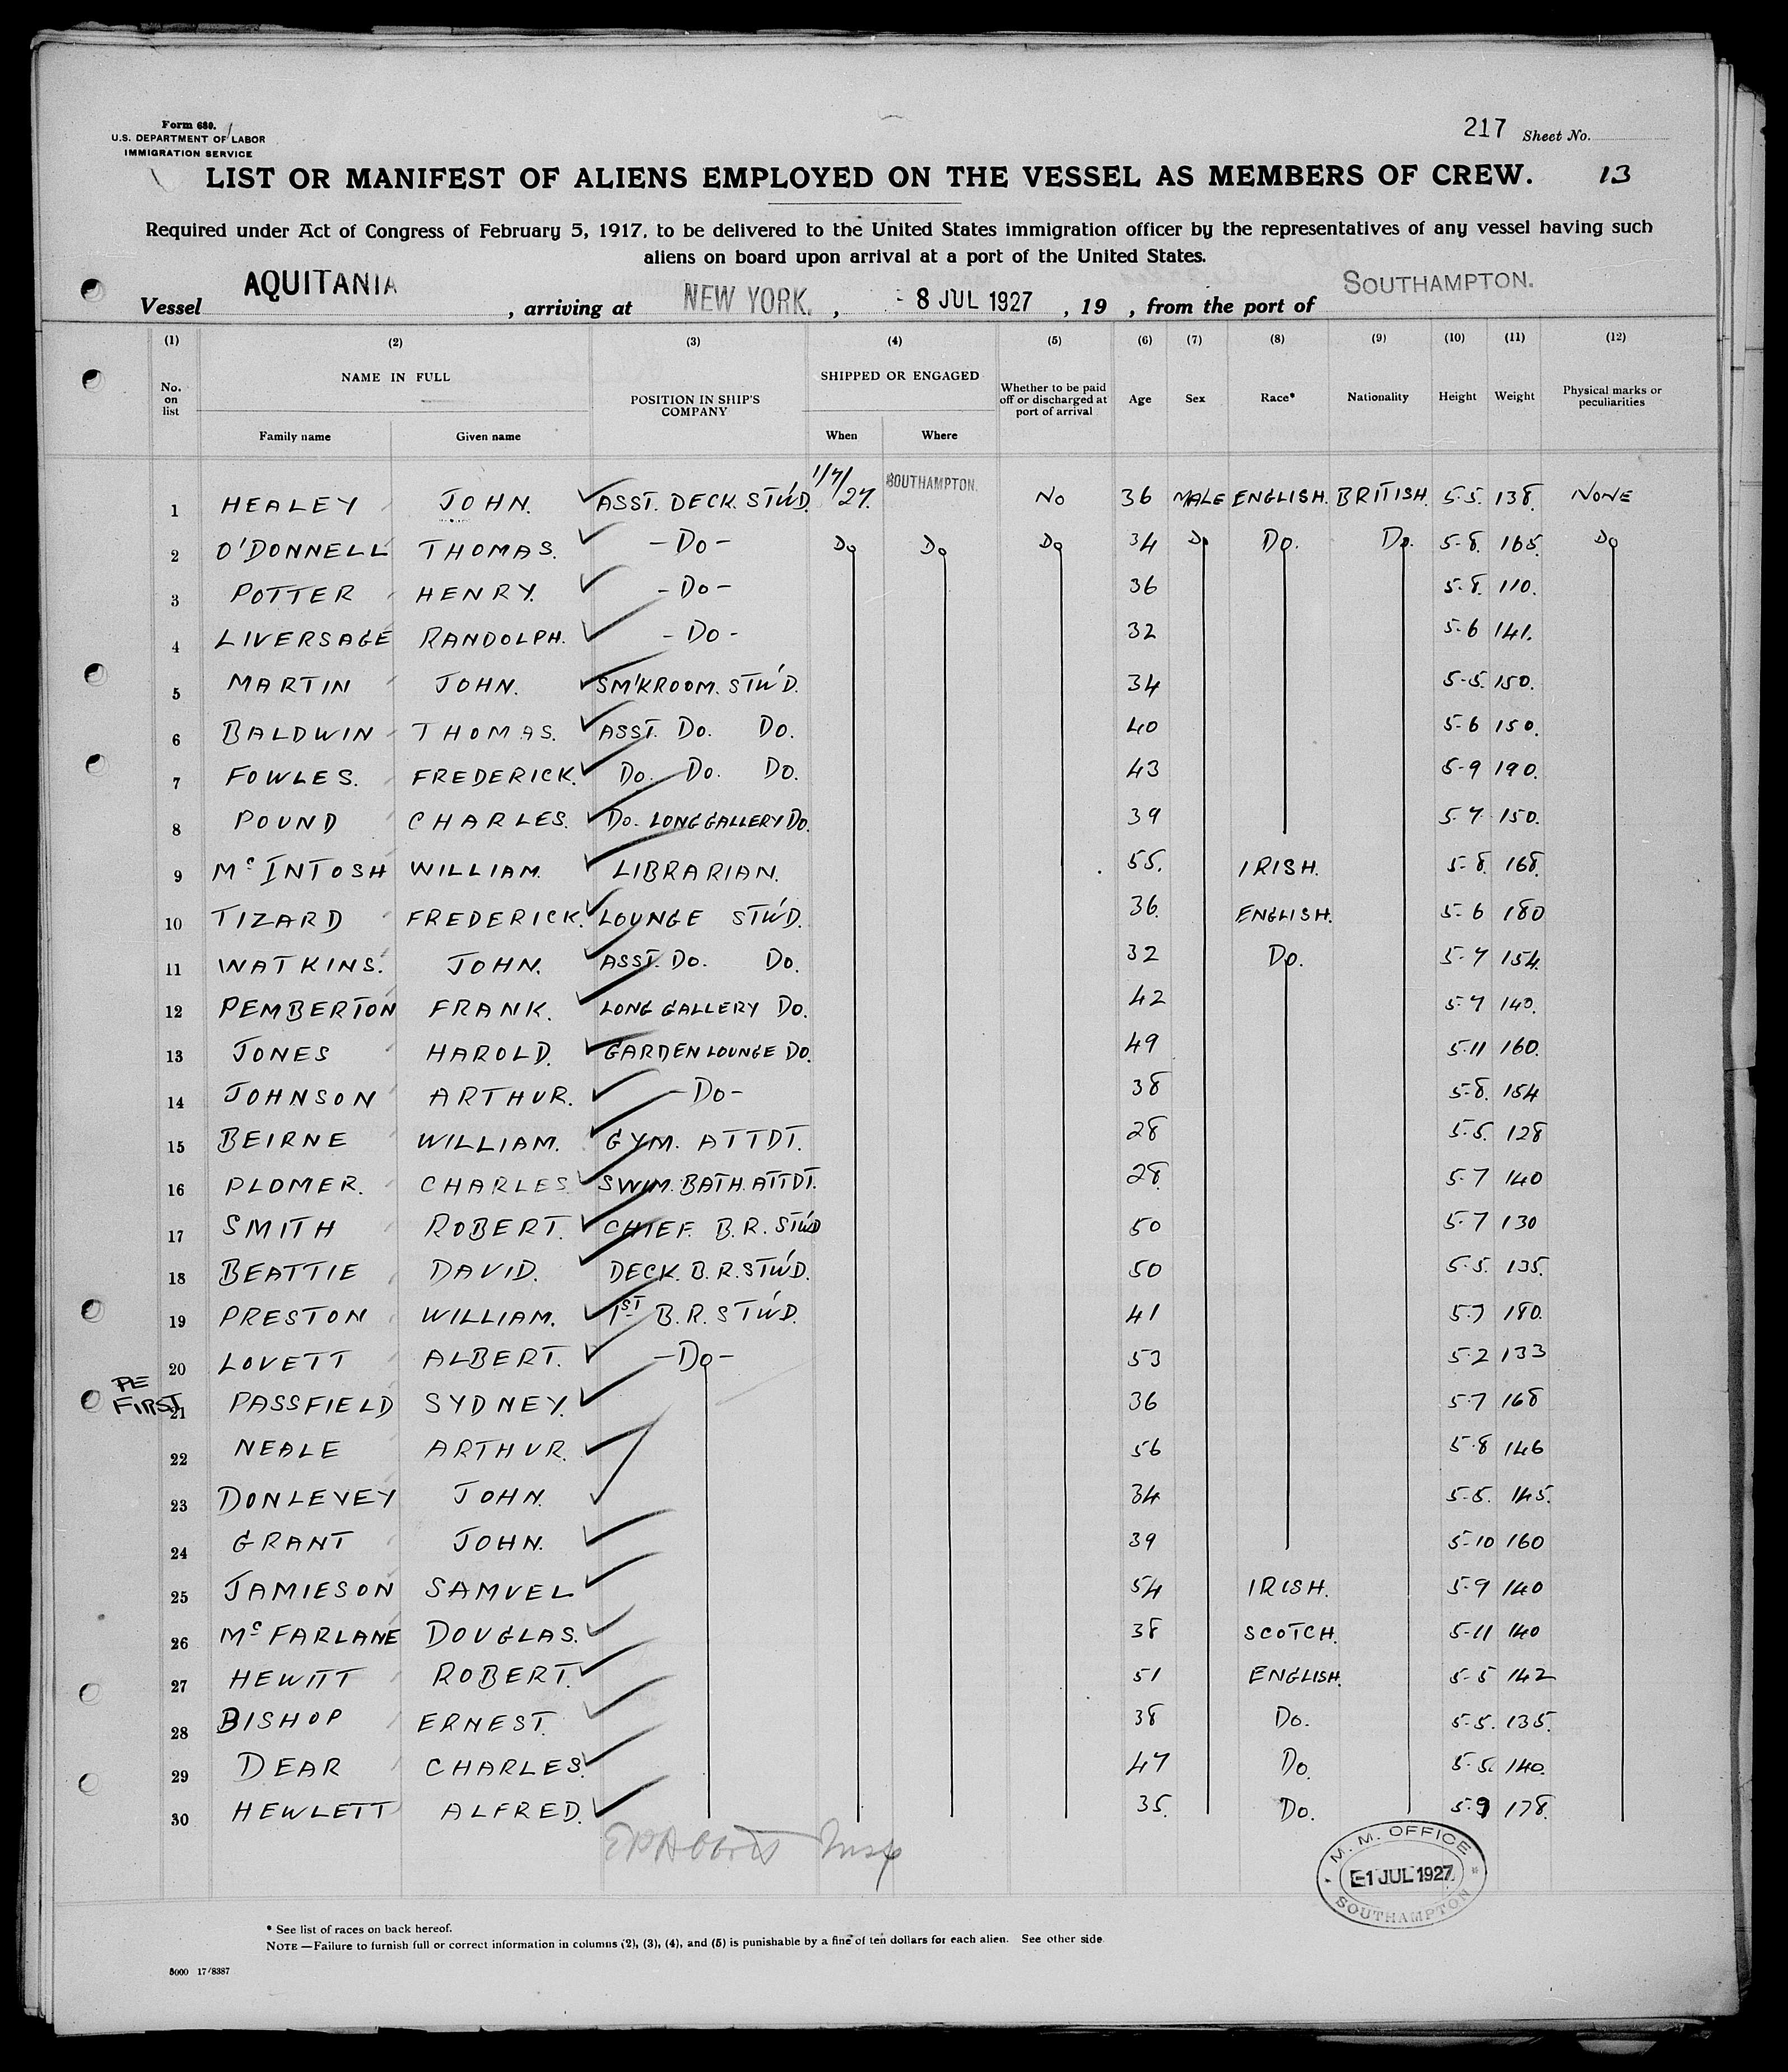 Form 680.
U.S. DEPARTMENT OF LABOR
IMMIGRATION SERVICE
217 Sheet No.
LIST OR MANIFEST OF ALIENS EMPLOYED ON THE VESSEL AS MEMBERS OF CREW. 13
Required under Act of Congress of February 5, 1917, to be delivered to the United States immigration officer by the representatives of any vessel having such
aliens on board upon arrival at a port of the United States.
Vessel AQUITANIA, arriving at NEW YORK., - 8 JUL 1927, 19 , from the port of SOUTHAMPTON.
(1) (2) (3) (4) (5) (6) (7) (8) (9) (10) (11) (12)
No. on list NAME IN FULL POSITION IN SHIP'S COMPANY SHIPPED OR ENGAGED Whether to be paid off or discharged at port of arrival Age Sex Race* Nationality Height Weight Physical marks or peculiarities
Family name Given name When Where
1 HEALEY JOHN. ASST. DECK. STW'D. 1/7/27. SOUTHAMPTON. NO 36 MALE ENGLISH. BRITISH. 5-5. 138. NONE
2 O'DONNELL THOMAS. -DO- DO DO DO 34 DO DO. DO. 5-8. 165. DO
3 POTTER HENRY. -DO- 36 5-8. 110.
4 LIVERSAGE RANDOLPH. -DO- 32 5-6 141.
5 MARTIN JOHN. SM'KROOM. STW'D. 34 5-5. 150.
6 BALDWIN THOMAS. ASST. DO. DO. 40 5-6 150.
7 FOWLES. FREDERICK. DO. DO. DO. 43 5-9 190.
8 POUND CHARLES. DO. LONG GALLERY DO. 39 5-7 150.
9 McINTOSH WILLIAM. LIBRARIAN. 55. IRISH. 5-8. 168.
10 TIZARD FREDERICK. LOUNGE STW'D. 36. ENGLISH. 5-6 180
11 WATKINS. JOHN. ASST. DO. DO. 32 DO. 5-7 154.
12 PEMBERTON FRANK. LONG GALLERY DO. 42 5-7 140.
13 JONES HAROLD. GARDEN LOUNGE DO. 49 5-11 160.
14 JOHNSON ARTHUR. -DO- 38 5-8. 154
15 BEIRNE WILLIAM. GYM. ATTDT. 28 5-5. 128
16 PLOMER. CHARLES SWIM. BATH. ATTDT. 28. 5-7 140
17 SMITH ROBERT. CHIEF. B.R. STW'D 50 5-7 130
18 BEATTIE DAVID. DECK. B.R. STW'D. 50 5-5. 135.
19 PRESTON WILLIAM. 1ST B.R. STW'D. 41 5-7 180.
20 LOVETT ALBERT. -DO- 53 5-2 133
PE
FIRST
21 PASSFIELD SYDNEY. 36 5-7 168
22 NEALE ARTHUR. 56 5-8 146
23 DONLEVEY JOHN. 34 5-5. 145.
24 GRANT JOHN. 39 5-10 160
25 JAMIESON SAMUEL 54 IRISH. 5-9 140
26 McFARLANE DOUGLAS. 38 SCOTCH. 5-11 140
27 HEWITT ROBERT. 51 ENGLISH. 5-5 142
28 BISHOP ERNEST. 38 DO. 5-5. 135.
29 DEAR CHARLES. 47 DO. 5-5. 140.
30 HEWLETT ALFRED. 35. DO. 5-9 178.
M. M. OFFICE
E-1 JUL 1927
SOUTHAMPTON
* See list of races on back hereof.
NOTE —Failure to furnish full or correct information in columns (2), (3), (4), and (5) is punishable by a fine of ten dollars for each alien. See other side
5000 17/8387